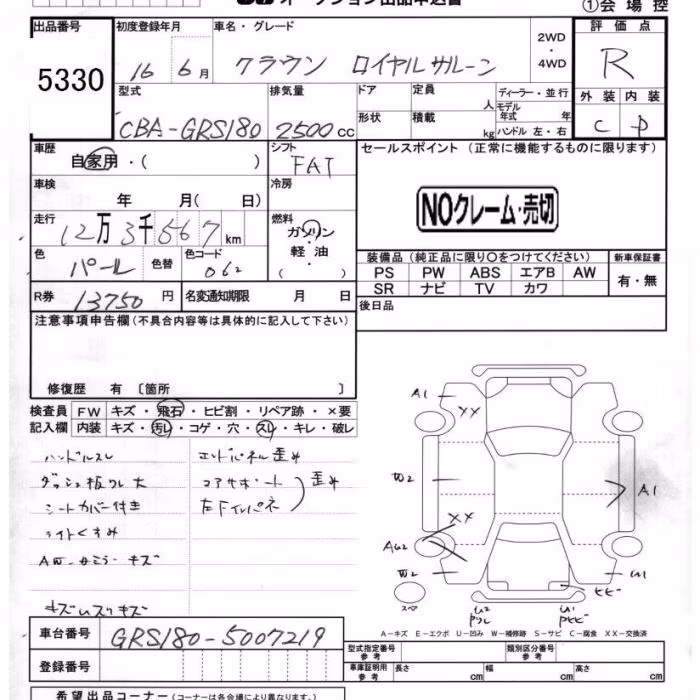 ①会場控
出品番号 初度登録年月 車名・グレード 評価点
5330 16 6月 クラウン ロイヤルサルーン 2WD・4WD R
型式 排気量 ドア 定員 人 ディーラー・並行 外装 内装
CBA-GRS180 2500cc 形状 積載 kg モデル年式 年 ハンドル 左・右 C D
車歴 自家用・( ) シフト FAT セールスポイント (正常に機能するものに限ります)
車検 年 月( 日) 冷房
NOクレーム・売切
走行 12万3千567km 燃料 ガソリン・軽油・( )
色 パール 色替 色コード 062
装備品 (純正品に限り○をつけてください) 新車保証書
PS PW ABS エアB AW 有・無
SR ナビ TV カワ
R券 13750円 名変通知期限 月 日 後日品
注意事項申告欄 (不具合内容等は具体的に記入して下さい)
修復歴 有 〔箇所 〕
検査員 FW キズ・飛石・ヒビ割・リペア跡・×要
記入欄 内装 キズ・汚レ・コゲ・穴・スレ・キレ・破レ
ハンドルスレ エンドパネル歪み
ダッシュ板ワレ大 コアサポート 歪み
シートカバー付き 左下インパネ
ライトくすみ
AW・ドアミラーキズ
キズ・スリキズ
A1 XX
W2 A1
XX
AU2
W2 U1
ヒビ
スペア U2 ワレ U1
A−キズ E−エクボ U−凹み W−補修跡 S−サビ C−腐食 XX−交換済
車台番号 GRS180-5007219
型式指定番号 参考 類別区分番号 参考
登録番号 車庫証明用 参考 長さ cm 幅 cm 高さ cm
希望出品コーナー (コーナーは各会場により異なります。)